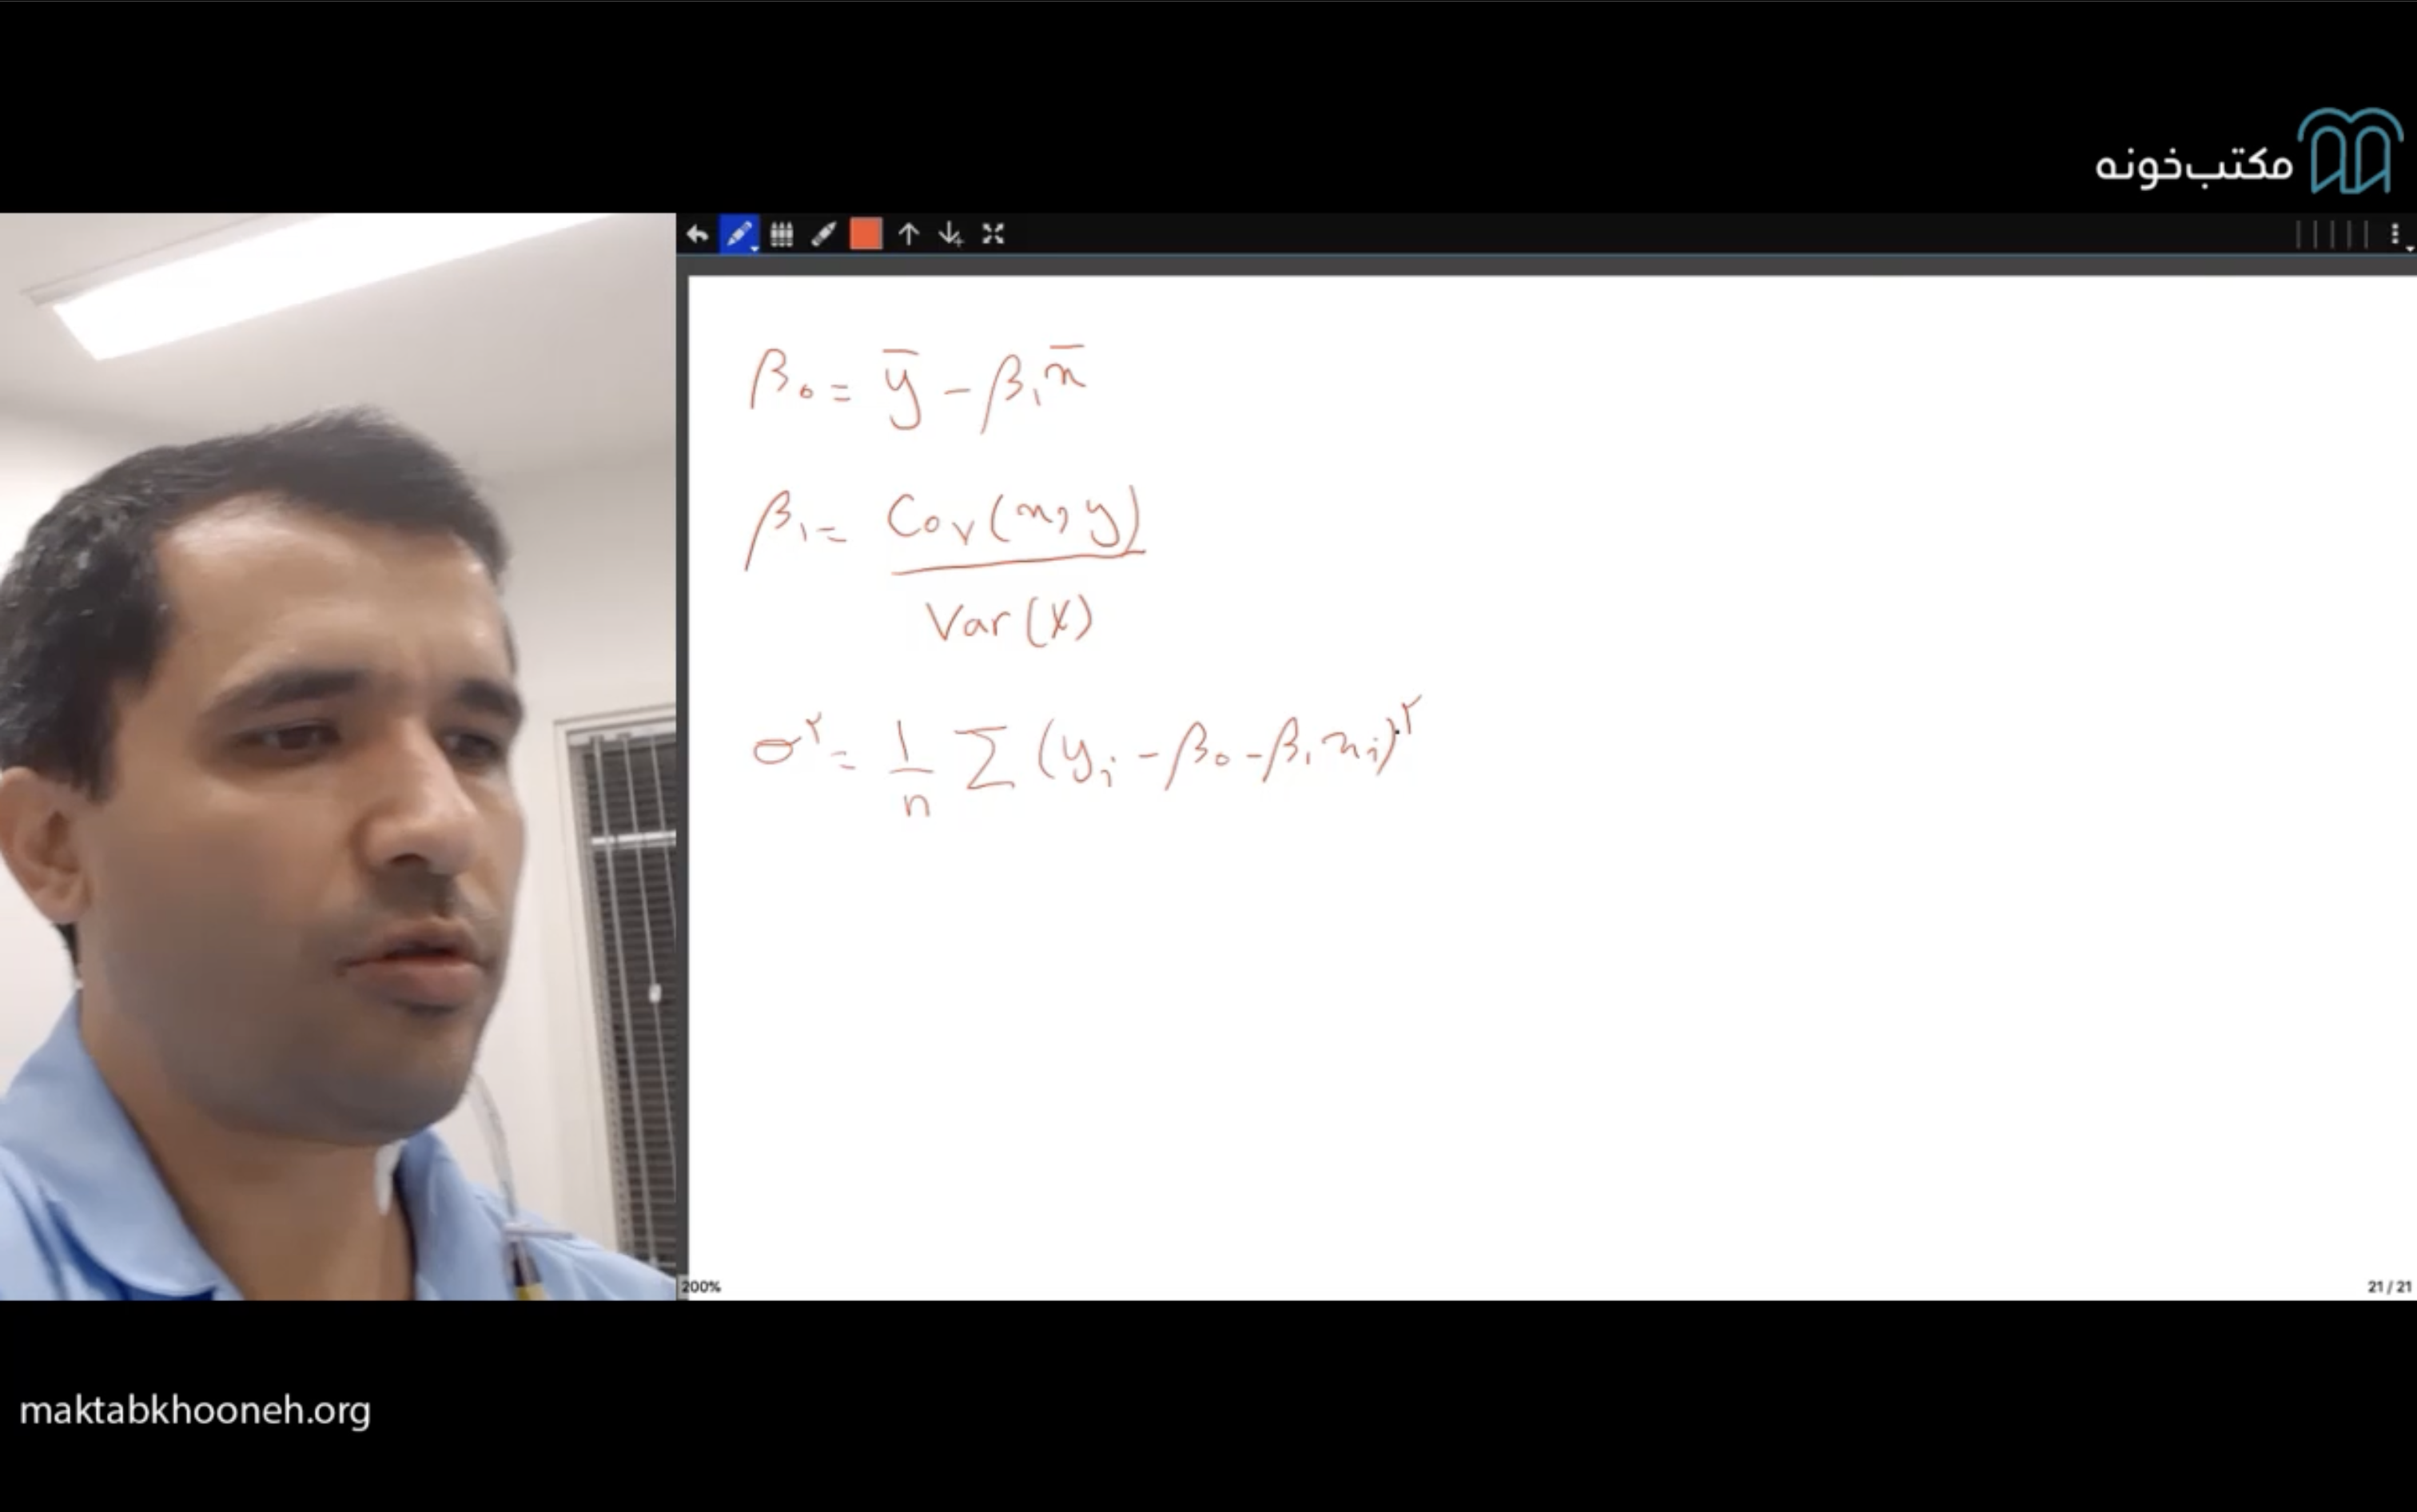 مکتب‌خونه
β₀ = ȳ - β₁x̄
β₁ = Cov(x, y)
Var(X)
σ^۲ = 1/n Σ (yᵢ - β₀ - β₁xᵢ)^۲
200%
21 / 21
maktabkhooneh.org